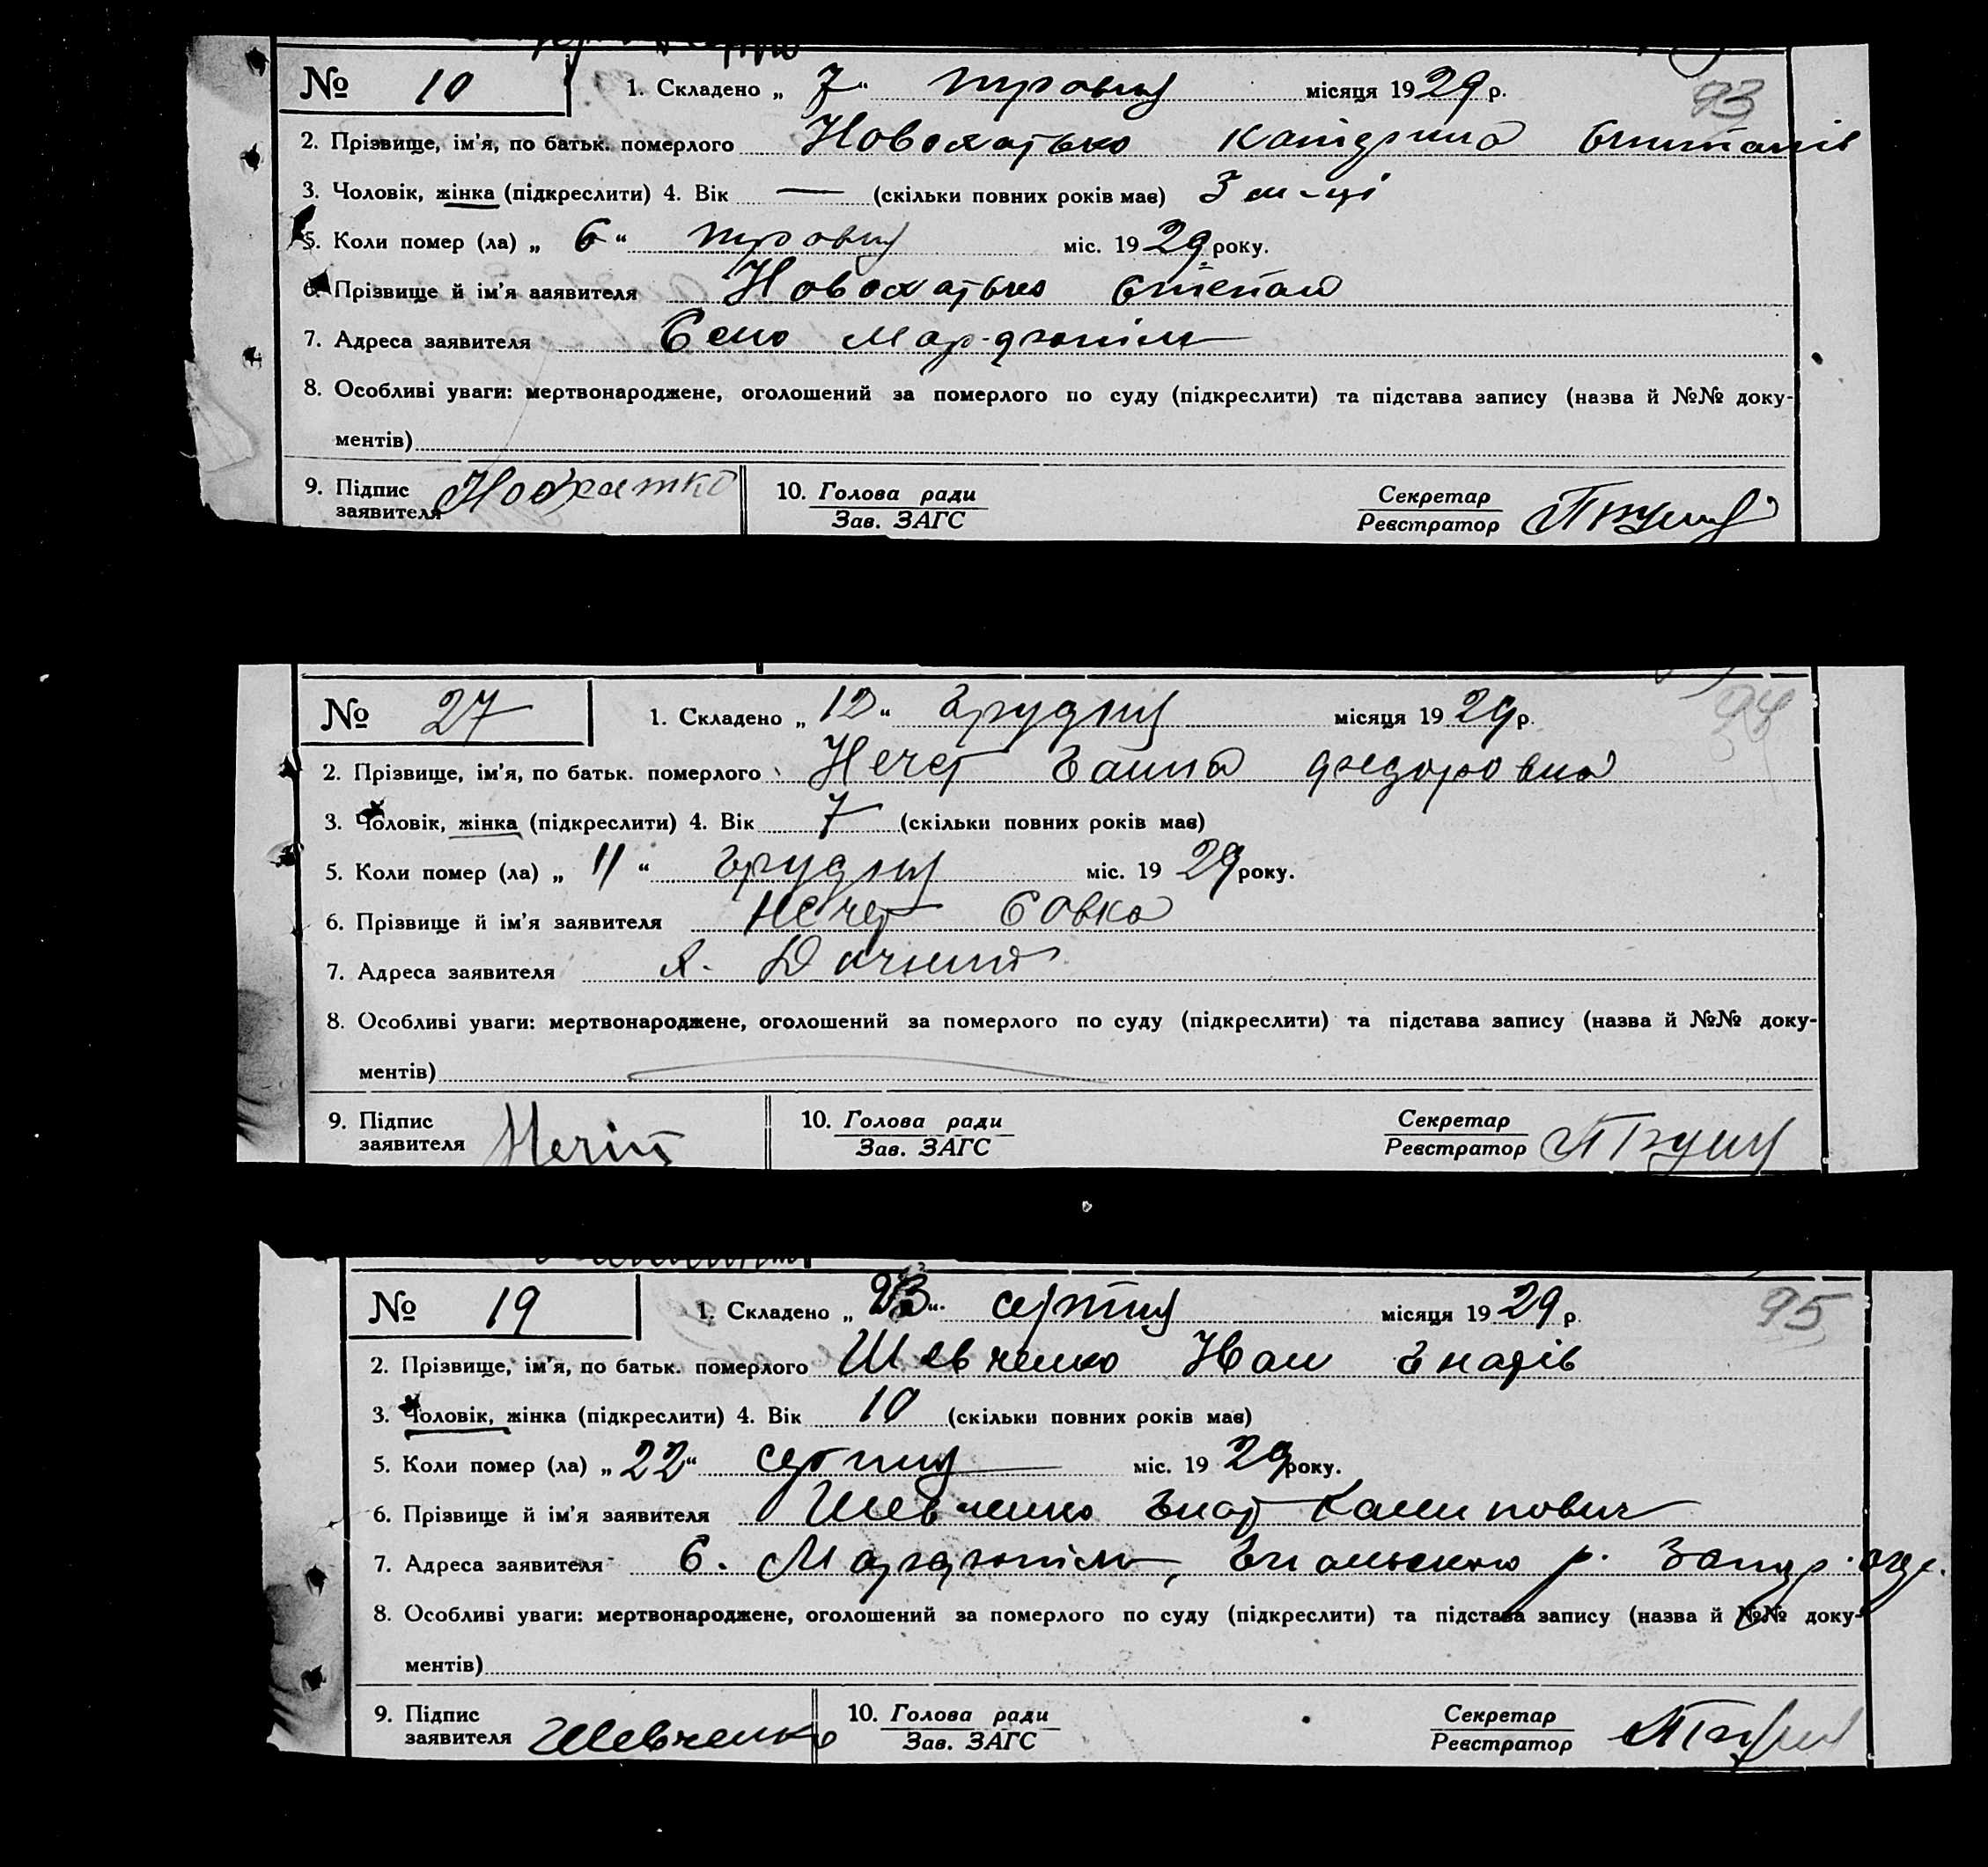 № 10 1. Складено „ 7 “ травня місяця 1929 р. 93
2. Прізвище, ім'я, по батьк. померлого Новохатько Катерина
3. Чоловік, жінка (підкреслити) 4. Вік — (скільки повних років має) 3 м-ці
5. Коли помер (ла) „ 6 “ травня міс. 1929 року.
6. Прізвище й ім'я заявителя Новохатько Степан
7. Адреса заявителя Село Мар-дхопіль
8. Особливі уваги: мертвонароджене, оголошений за померлого по суду (підкреслити) та підстава запису (назва й №№ доку-
ментів)
9. Підпис 10. Голова ради Секретар
заявителя Зав. ЗАГС Реєстратор
№ 27 1. Складено „ 12 “ грудня місяця 1929 р. 94
2. Прізвище, ім'я, по батьк. померлого Нечет Ганна Федоровна
3. Чоловік, жінка (підкреслити) 4. Вік 7 (скільки повних років має)
5. Коли помер (ла) „ 11 “ грудня міс. 1929 року.
6. Прізвище й ім'я заявителя Нечет Совка
7. Адреса заявителя х. Дачний
8. Особливі уваги: мертвонароджене, оголошений за померлого по суду (підкреслити) та підстава запису (назва й №№ доку-
ментів)
9. Підпис 10. Голова ради Секретар
заявителя Нечіт Зав. ЗАГС Реєстратор
№ 19 1. Складено „ 23 “ серпня місяця 1929 р. 95
2. Прізвище, ім'я, по батьк. померлого Шевченко Іван Гнатів
3. Чоловік, жінка (підкреслити) 4. Вік 10 (скільки повних років має)
5. Коли помер (ла) „ 22 “ серпня міс. 1929 року.
6. Прізвище й ім'я заявителя Шевченко Гнат Калинович
7. Адреса заявителя С. р. Запор. окр.
8. Особливі уваги: мертвонароджене, оголошений за померлого по суду (підкреслити) та підстава запису (назва й №№ доку-
ментів)
9. Підпис 10. Голова ради Секретар
заявителя Шевченко Зав. ЗАГС Реєстратор